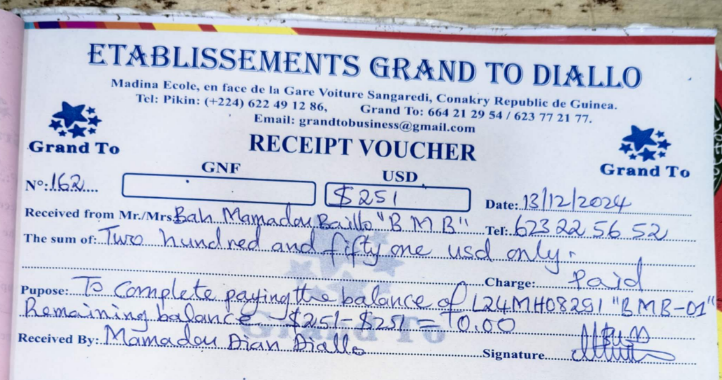 ETABLISSEMENTS GRAND TO DIALLO
Madina Ecole, en face de la Gare Voiture Sangaredi, Conakry Republic de Guinea.
Tel: Pikin: (+224) 622 49 12 86, Grand To: 664 21 29 54 / 623 77 21 77.
Email: grandtobusiness@gmail.com
Grand To
RECEIPT VOUCHER
Grand To
GNF USD
Nº: 162 $251 Date: 13/12/2024
Received from Mr./Mrs Bah Mamadou Baillo "B M B" Tel: 623 22 56 52
The sum of: Two hundred and fifty one usd only.
Charge: Paid
Pupose: To Complete paying the balance of L24MH08251 "BMB-01"
Remaining balance $251-$251 = 0.00
Received By: Mamadou Dian Diallo Signature